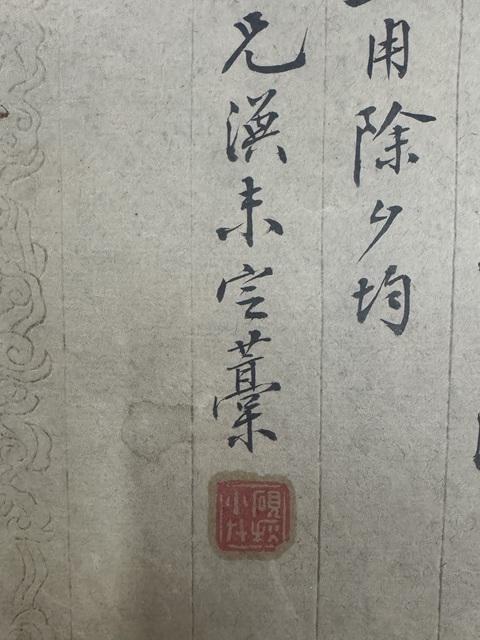 用除夕均
兄漢未定藁